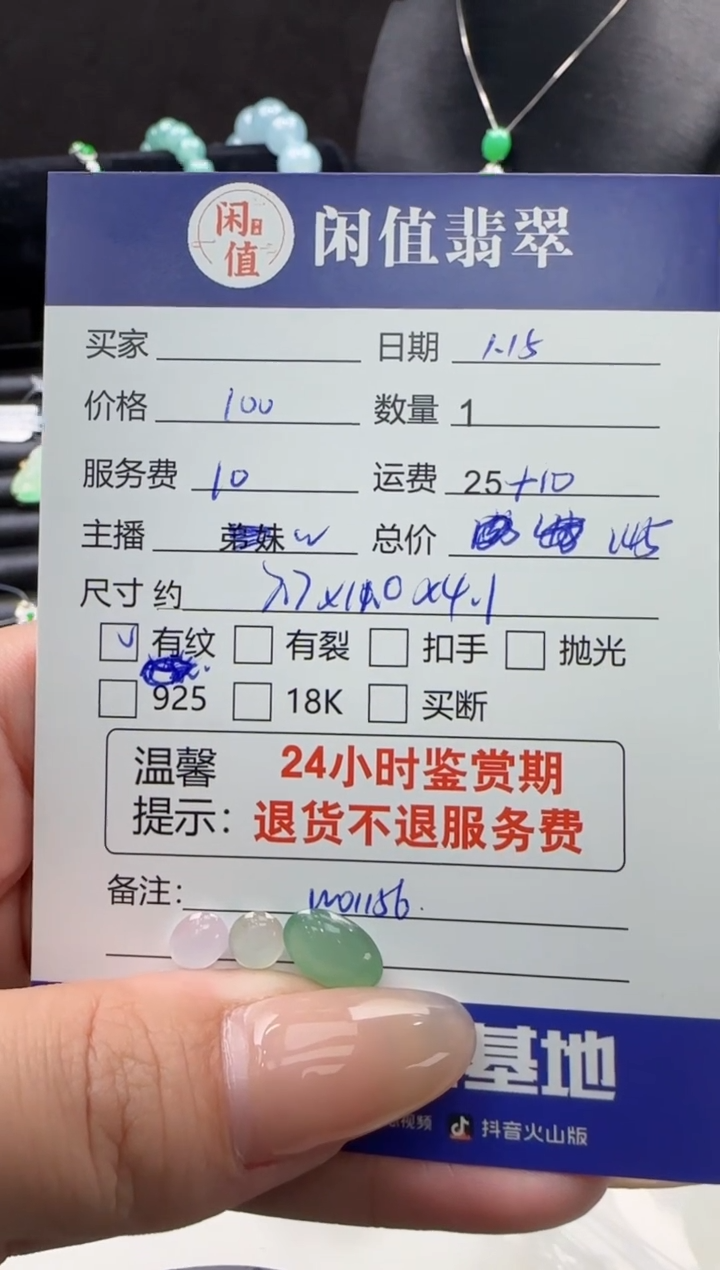 闲值
闲值翡翠
买家 日期 1.15
价格 100 数量 1
服务费 10 运费 25+10
主播 弟妹 总价 145
尺寸 约
有纹 有裂 扣手 抛光
925 18K 买断
温馨 24小时鉴赏期
提示: 退货不退服务费
备注:
基地
视频 抖音火山版